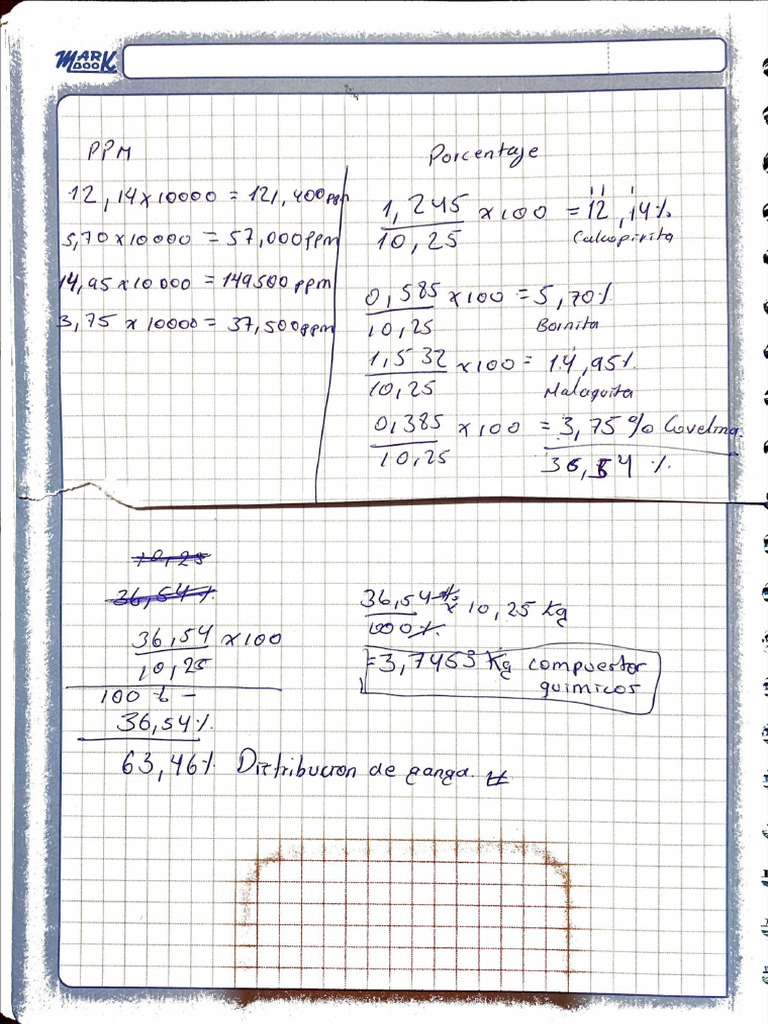 MARK BOOK
PPM
12,14x10000 = 121,400ppm
5,70x10000 = 57,000ppm
14,95x10000 = 149500ppm
3,75 x10000 = 37,500ppm
Porcentaje
1,245 x100 = 12,14%
10,25
Calcopirita
0,585 x100 = 5,70%
10,25
Bornita
1,532 x100 = 14,95%
10,25
Malaquita
0,385 x100 = 3,75%
10,25
36,54 %
10,25
36,54%
36,54 x100
10,25
100 % -
36,54%
63,46% Distribucion de ganga.
36,54% x 10,25 Kg
100%
=3,7453 Kg compuestos
quimicos